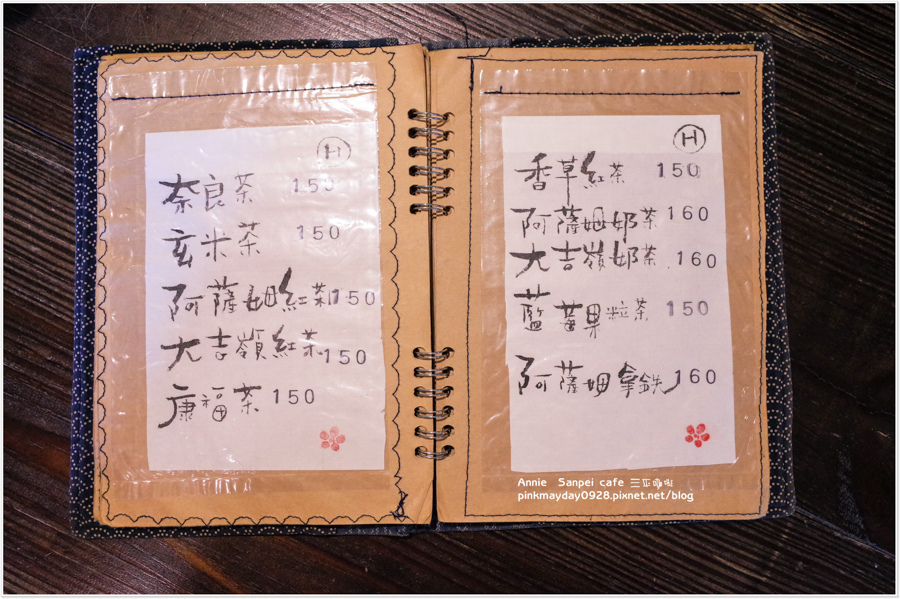 H
奈良茶 150
玄米茶 150
阿薩姆紅茶 150
大吉嶺紅茶 150
康福茶 150
H
香草紅茶 150
阿薩姆奶茶 160
大吉嶺奶茶 160
藍莓果粒茶 150
阿薩姆拿鉄 160
Annie Sanpei cafe 三匹咖啡
pinkmayday0928.pixnet.net/blog